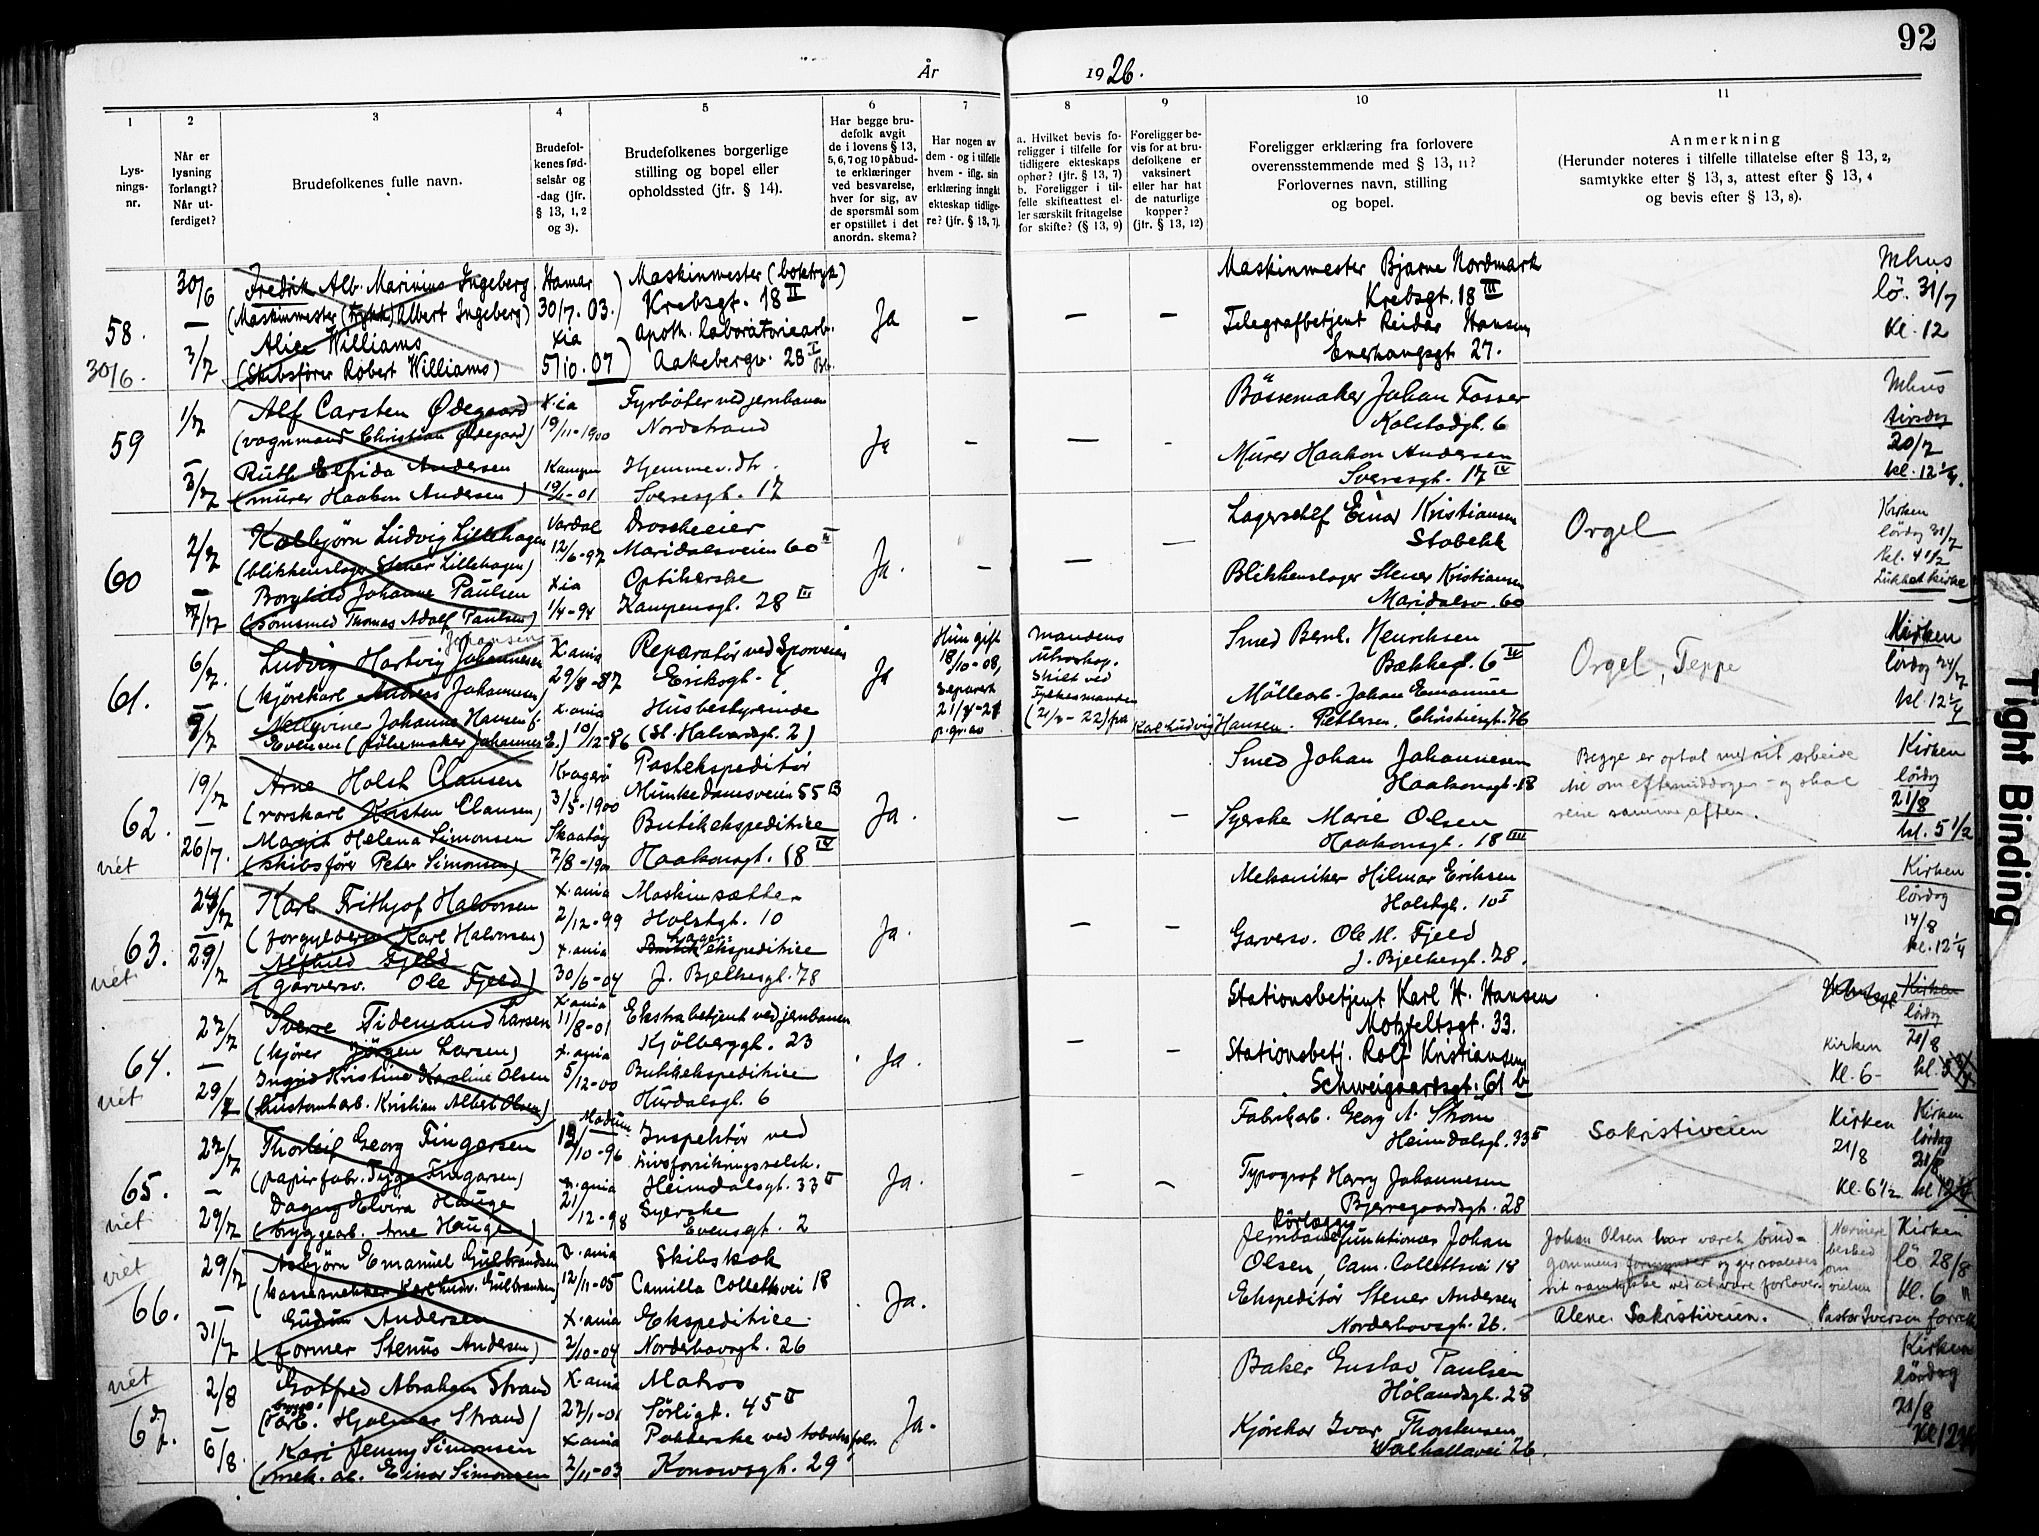 92
År 1926.
1 2 3 4 5 6 7 8 9 10 11
Lys-
nings-
nr.
Når er
lysning
forlangt?
Når ut-
ferdiget?
Brudefolkenes fulle navn.
Brudefol-
kenes fød-
selsår og
-dag (jfr.
§ 13, 1, 2
og 3).
Brudefolkenes borgerlige
stilling og bopel eller
opholdssted (jfr. § 14).
Har begge bru-
defolk avgit
de i lovens § 13,
5, 6, 7 og 10 påbud-
te erklæringer
ved besvarelse,
hver for sig, av
de spørsmål som
er opstillet i det
anordn. skema?
Har nogen av
dem - og i tilfelle
hvem - iflg. sin
erklæring inngått
ekteskap tidlige-
re? (jfr. § 13, 7).
a. Hvilket bevis fo-
religger i tilfelle for
tidligere ekteskaps
ophør? (jfr. § 13, 7)
b. Foreligger i til-
felle skifteattest el-
ler særskilt fritagelse
for skifte? (§ 13, 9)
Foreligger be-
vis for at bru-
defolkene er
vaksinert
eller har hat
de naturlige
kopper?
(jfr. § 13, 12)
Foreligger erklæring fra forlovere
overensstemmende med § 13, 11?
Forlovernes navn, stilling
og bopel.
Anmerkning
(Herunder noteres i tilfelle tillatelse efter § 13, 2,
samtykke efter § 13, 3, attest efter § 13, 4
og bevis efter § 13, 8).
58.
30/6.
30/6
—
3/7
Fredrik Alb. Marinius Ingeberg
(Maskinmester (trykk) Albert Ingeberg)
Alice Williams
(Skibsfører Robert Williams)
Hamar
30/7. 03.
Xia
5/10. 07
Maskinmester (boktryk)
Krebsgt. 18 II
Apoth. laboratoriearb.
Aakebergv. 28 I
Ja
— — —
Maskinmester Bjarne Nordmark
Krebsgt. 18 III
Telegrafbetjent Reidar Hansen
Enerhaugsgt 27.
Mhus
lö. 31/7
Kl. 12
59
1/7
—
3/7
Alf Carsten Ødegaard
(vognmand Christian Ødegaard)
Ruth Elfrida Andersen
(murer Haakon Andersen)
X.ia
19/11-1900
Kampen
19/1-01
Fyrböter ved jernbanen
Nordstrand
Hjemmev. dtr.
Sveresgt. 17
Ja
- — -
Bössemaker Johan Fosser
Kolstadgt. 6
Murer Haakon Andersen
Sveresgt. 17 IV
Mhus
tirsdag
20/7
kl. 12 1/4.
60
2/7
—
7/7
Kolbjørn Ludvig Lillehagen
(blikkenslager Stener Lillehagen)
Borghild Johanne Paulsen
(somsmed Thomas Adolf Paulsen)
Vardal
12/6-97
Xia
1/4-94
Droscheeier
Maridalsveien 60
Optikerske
Kampensgt. 28 III
Ja.
- — —
Lagerchef Einar Kristiansen
Stabekk
Blikkenslager Stener Kristiansen
Maridalsv. 60
Orgel
Kirken
lørdag 31/7
kl. 4 1/2
Lukket kirke
61.
6/7.
—
9/7
Johansen
Ludvig Hartvig Johannesen
(kjørekarl Anders Johannesen)
Nellyvine Johanne Hansen f.
Evensen (pölsemaker Johannes E.)
X.ania
29/8-87
X.ania
10/12-86
Reparatör ved Sporveien
Eriksgt. 4
Husbestyrerinde
(St. Halvardsgt. 2)
Ja
Hun gift
18/10-08,
separert
21/4-21
p. gr. av
mandens
utroskap.
Skilt ved
Fylkesmanden
(21/4-22) fra
Karl Ludvig Hansen.
Smed Bernh. Henriksen
Bækkegt. 6 IV
Möllearb. Johan Emanuel
Pettersen, Christiesgt. 76
Orgel, Teppe
Kirken
lørdag 24/7
kl. 12 1/4
62.
viet
19/7
—
26/7.
Arne Holst Clausen
(verskarl Kristen Clausen)
Margit Helena Simonsen
(skibsförer Peter Simonsen)
Kragerö
3/5-1900
Skaatöy
7/8-1900
Postekspeditör
Munkedamsveien 55 B
Butikekspeditrice
Haakonsgt. 18 IV
Ja.
— —
Smed Johan Johannesen
Haakonsgt. 18
Syerske Marie Olsen
Haakonsgt. 18 III
Begge er optat med sit arbeide
til om eftermiddagen - og skal
reise samme aften.
Kirken
lørdag
21/8
kl. 5 1/2
63.
viet
24/7
—
29/7
Karl Frithjof Halvorsen
(forgylderen Karl Halvorsen)
Alfhild Fjeld
(garversv. Ole Fjeld)
X.ania
2/12-99
X.ania
30/6-04
Maskinsætter
Holstgt. 10
Lager-
Butikekspeditrice
J. Bjelkesgt. 78
Ja.
— —
Mekaniker Hilmar Eriksen
Holstgt. 10 I
Garversv. Ole M. Fjeld
J. Bjelkesgt. 78.
Kirken
lørdag
14/8
kl. 12 1/4
64.
viet
27/7
—
29/7
Sverre Tidemand Larsen
(kjører Jörgen Larsen)
Ingrid Kristine Karoline Olsen
(kustomtarb. Kristian Albert Olsen)
X.ania
11/8-01
X.ania
5/12-00
Ekstrabetjent ved jernbanen
Kjölberggt. 23
Butikekspeditrice
Hurdalsgt. 6
Ja.
— —
Stationsbetjent Karl H. Hansen
Motzfeltsgt. 33.
Stationsbetj. Rolf Kristiansen
Schweigaardsgt. 61 b
Kirken
lørdag
21/8
kl. 5 3/4
Kirken
Kl. 6-
65.
viet
27/7
—
29/7
Thorleif Georg Fingarsen
(papirfabr. Tygge Fingarsen)
Dagny Elvira Hauge
(bryggearb. Arne Hauge)
Modum
12/10-96
X.ania
21/12-98
Inspektör ved
livsforsikringsselsk.
Heimdalsgt. 33 II
Syerske
Evensgt. 2
Ja.
- —
Fabrikarb. Georg N. Strøm
Heimdalsgt. 33 II
Typograf Harry Johannesen
Bjerregaardsgt. 28
Sakristiveien
Kirken
21/8
Kl. 6 1/2
Kirken
lørdag
21/8
kl 12 1/4
viet
66.
29/7
—
31/7
Asbjörn Emanuel Gulbrandsen
(kassesnekker Karl Ludv. Gulbrandsen)
Gudrun Andersen
(former Stenius Andersen)
X.ania
12/11-05
X.ania
2/10-04
Skibskok
Camilla Collettsvei 18
Ekspeditrice
Norderhovsgt. 26
Ja.
Rörlægger
Jernbanefunktionær Johan
Olsen, Cam. Collettsvei 18
Ekspeditör Stener Andersen
Norderhovsgt. 26.
Johan Olsen har været brud-
gommens formynder og gir saaledes
sit samtykke ved at være forlover.
Alene. Sakristiveien.
Nærmere
besked
om
vielsen
Kirken
lö 28/8
Kl. 6
Pastor Iversen forrett.
viet
67.
2/8
6/8.
Gotfred Abraham Strand
brygge-
(arb. Hjalmar Strand)
Kari Jenny Simonsen
(mek. arb. Einar Simonsen
X.ania
27/1-01
X.ania
2/11-03
Matros
Sörligt. 45 II
Pakkerske ved tobaksfabr.
Konowsgt. 29
Ja.
Baker Gustav Paulsen
Hölandsgt. 28
Kjörekar Ivar Thorstensen
Walhallavei 26.
Kirken
lørdag
21/8
Kl 12 1/4
Tight Binding